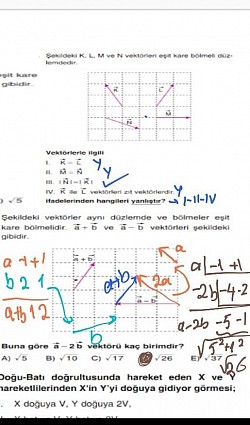 Şekildeki K, L, M ve N vektörleri eşit kare bölmeli düz-
lemdedir.
eşit kare
gibidir.
K
L
M
N
Vektörlerle ilgili
I. K = L y
II. M = N y
III. |N| = |K|
IV. K ile L vektörleri zıt vektörlerdir. y
ifadelerinden hangileri yanlıştır? → I-II-IV
) √5
Şekildeki vektörler aynı düzlemde ve bölmeler eşit
kare bölmelidir. a + b ve a – b vektörleri şekildeki
gibidir.
a -1 +1
b 2 1
a+b 1 2
a + b
a+b
2a
a
a – b
b
a -1 +1
-2b -4 -2
a-2b -5 -1
√5²+1²
√26
Buna göre a – 2b vektörü kaç birimdir?
A) √5 B) √10 C) √17 √26 E) √37
Doğu-Batı doğrultusunda hareket eden X ve
hareketlilerinden X'in Y'yi doğuya gidiyor görmesi;
I. X doğuya V, Y doğuya 2V,